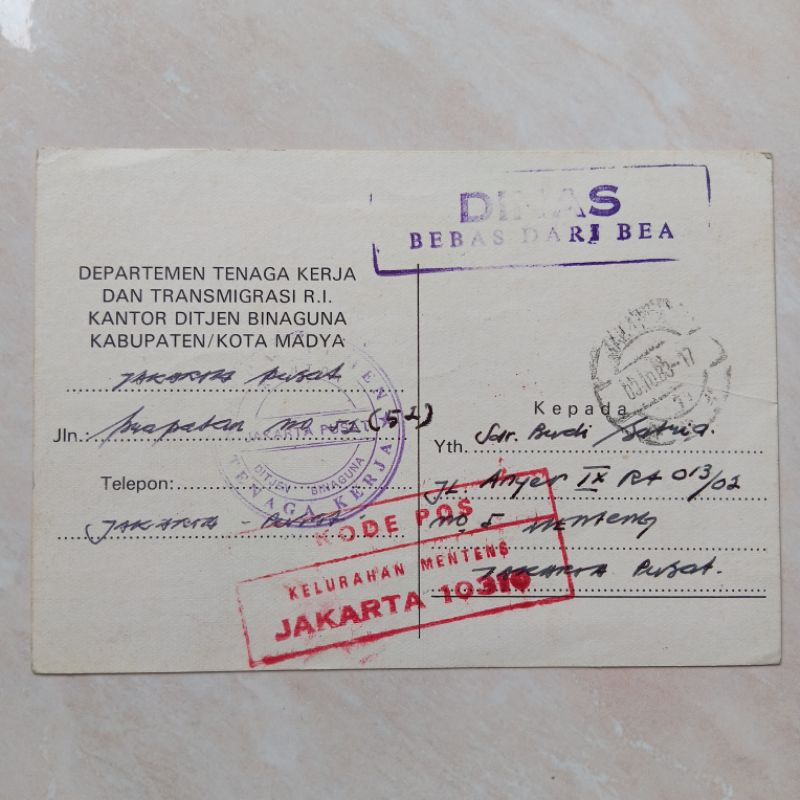 DINAS
BEBAS DARI BEA
DEPARTEMEN TENAGA KERJA
DAN TRANSMIGRASI R.I.
KANTOR DITJEN BINAGUNA
KABUPATEN/KOTA MADYA
JAKARTA Pusat
Jln.: Prapatan no 52 (52)
Telepon:
JAKARTA - Pusat.
JAKARTA PUSAT
DITJEN BINAGUNA
TENAGA KERJA
Kepada
Yth. Sdr. Budi Satria.
JL. Anyer IX Rt 013/02
no 5 Menteng
JAKARTA Pusat.
KODE POS
KELURAHAN MENTENG
JAKARTA 10310